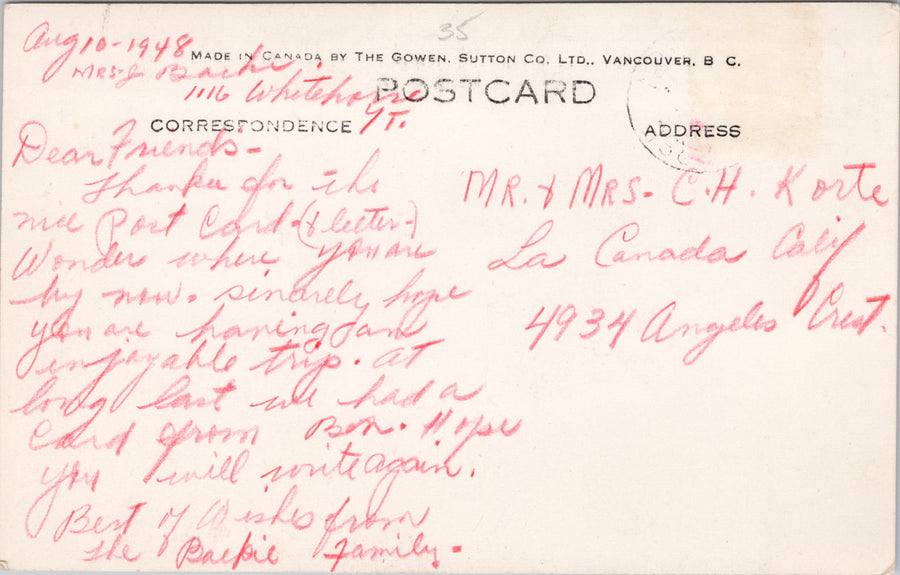 35
Aug 10-1948
MADE IN CANADA BY THE GOWEN, SUTTON CO. LTD., VANCOUVER, B C.
Mrs J Backe.
1116 Whitehorse
POSTCARD
YT.
CORRESPONDENCE
ADDRESS
Dear Friends-
Thanks for the
nice Post Card-(& letter-)
Wonder where you are
by now. sincerely hope
you are having an
enjoyable trip. at
long last we had a
Card from Ben. Hope
you will write again.
Best of Wishes from
the Backie Family-
MR. & MRS- C.H. Korte
La Canada Calif
4934 Angeles Crest.